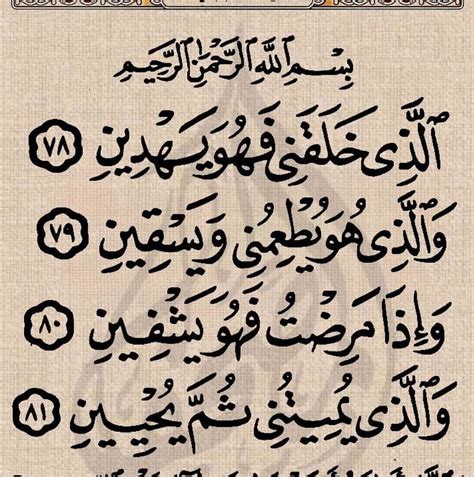 بِسْمِ ٱللَّهِ ٱلرَّحْمَٰنِ ٱلرَّحِيمِ
ٱلَّذِى خَلَقَنِى فَهُوَ يَهْدِينِ ٧٨
وَٱلَّذِى هُوَ يُطْعِمُنِى وَيَسْقِينِ ٧٩
وَإِذَا مَرِضْتُ فَهُوَ يَشْفِينِ ٨٠
وَٱلَّذِى يُمِيتُنِى ثُمَّ يُحْيِينِ ٨١